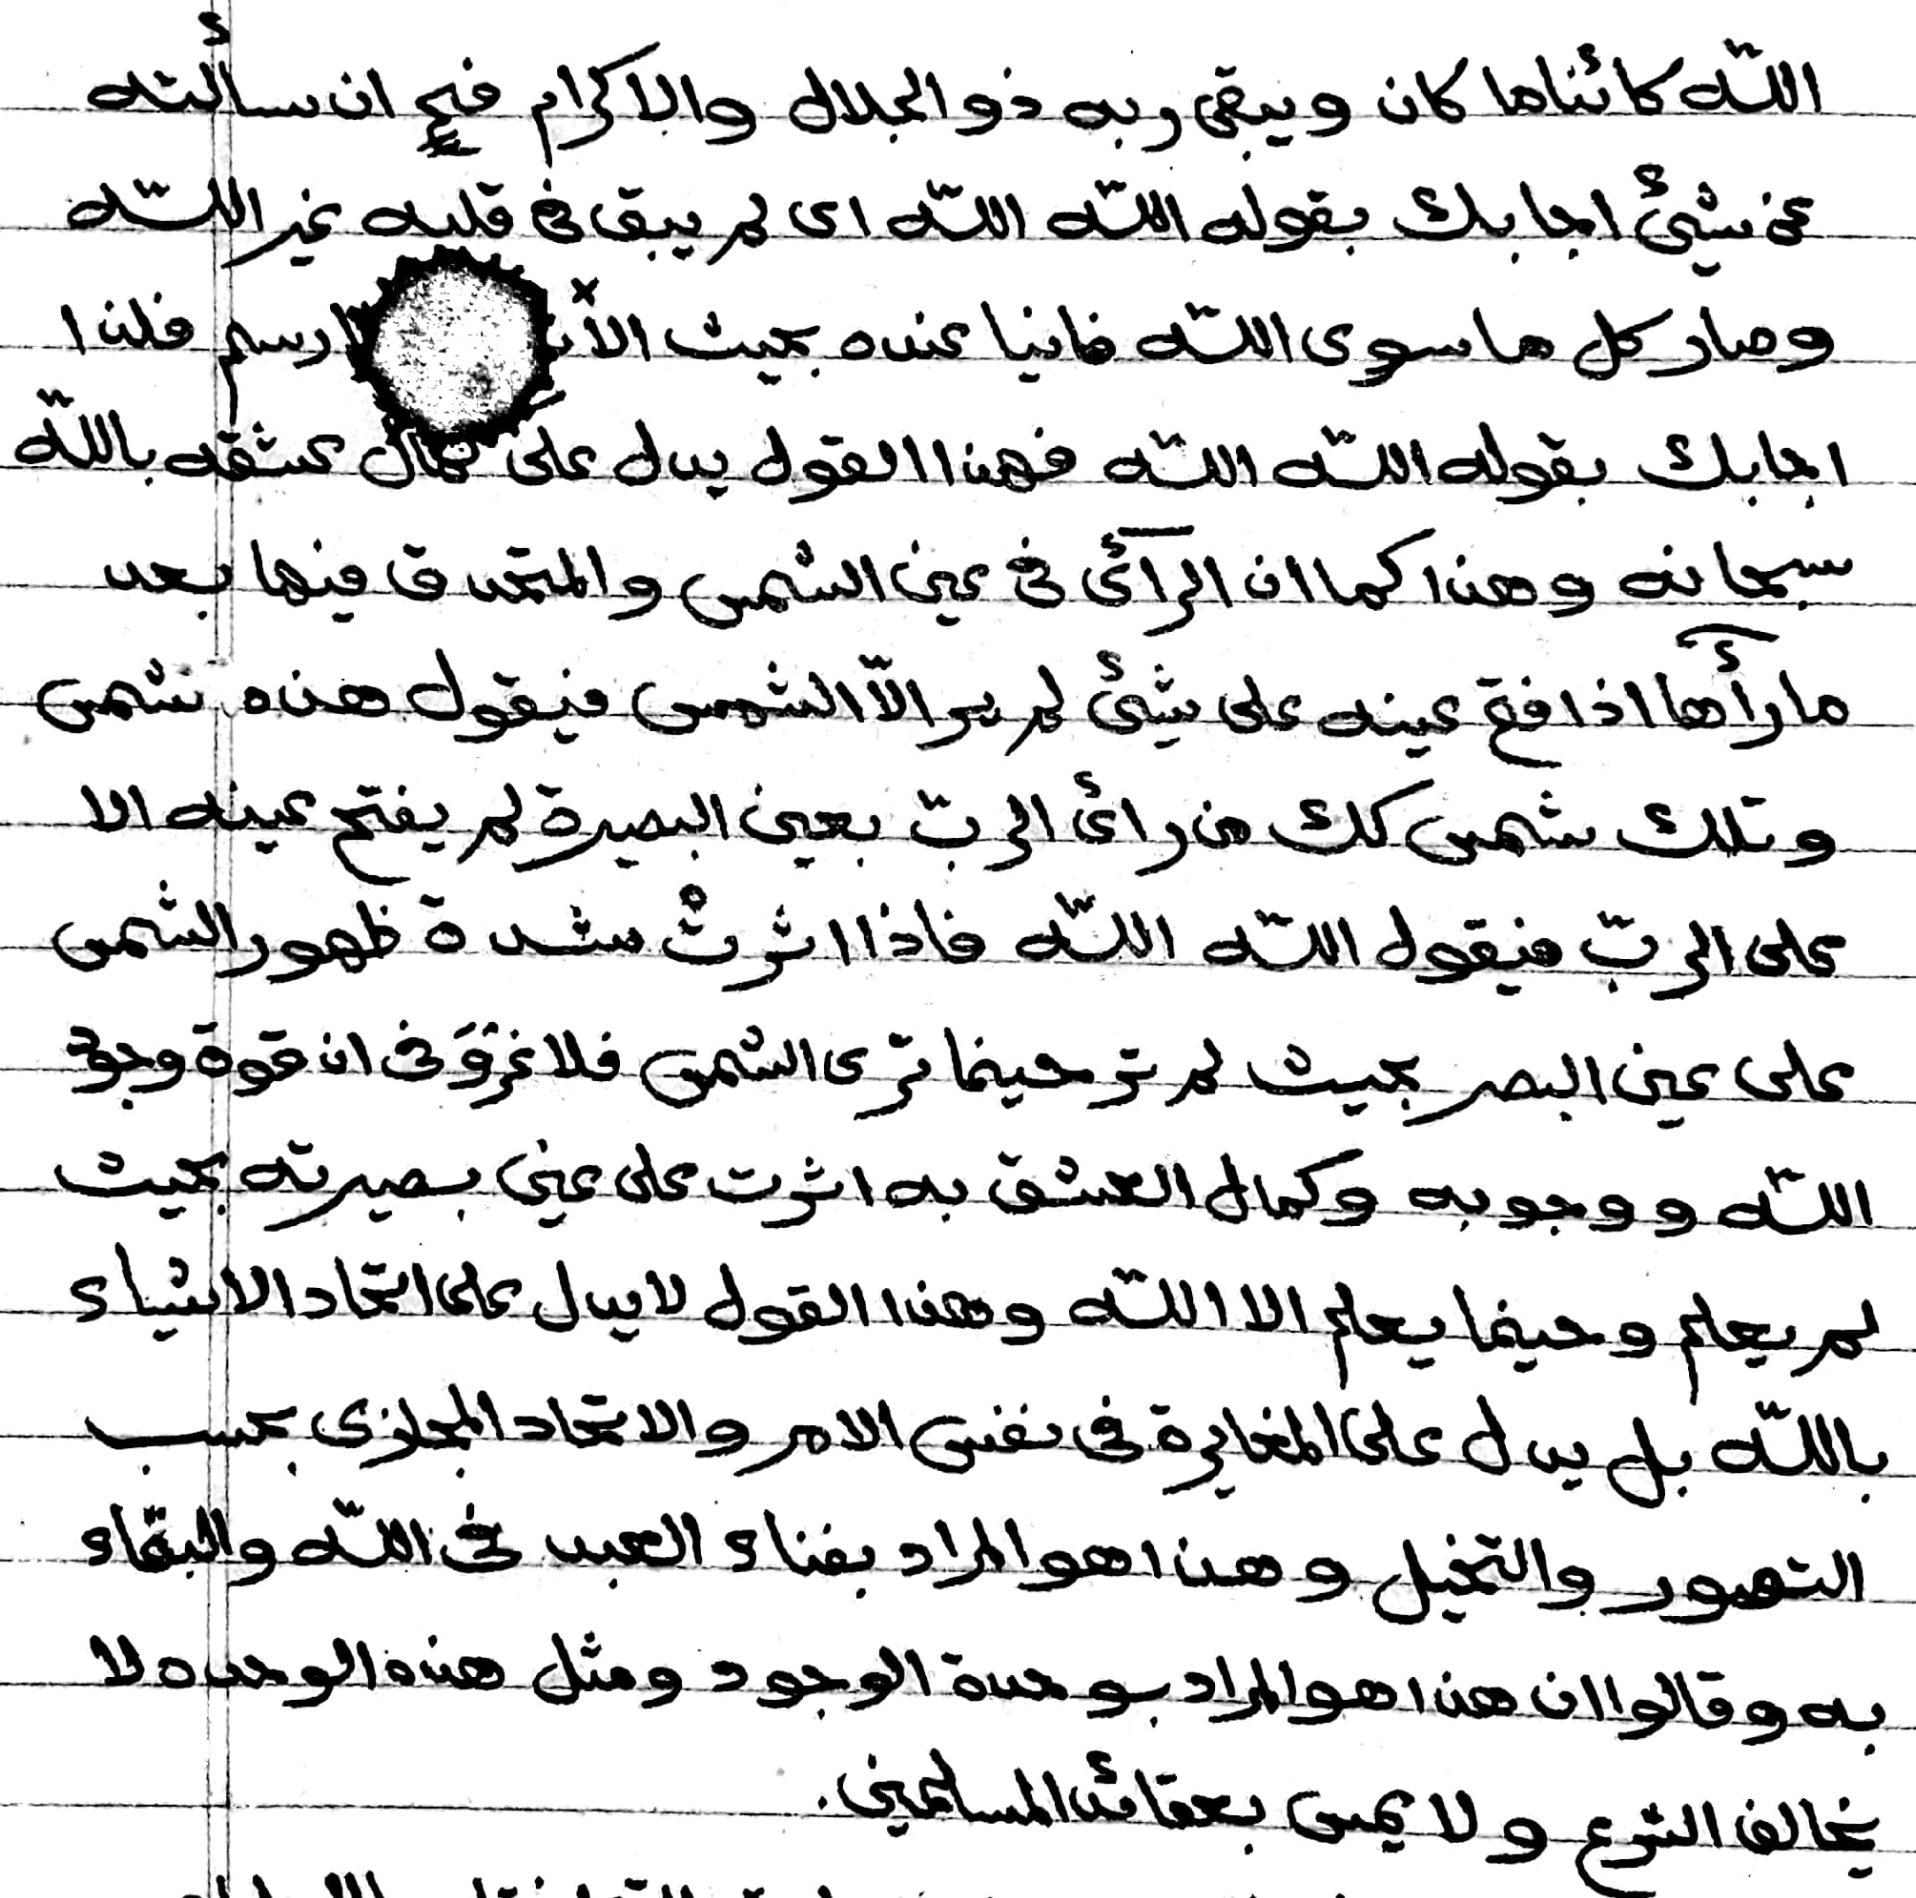 اللّه كائناما كان ويبقى ربه ذو الجلال والاكرام فح ان سألته
عن شيئ اجابك بقوله اللّه اللّه اى لم يبق فى قلبه غير اللّه
وصار كل ما سوى اللّه فانيا عنده بحيث رسم فلذا
اجابك بقوله اللّه اللّه فهذا القول يدل على كمال عشقه باللّه
سبحانه وهذا كما ان الرآئى فى عين الشمس والمتحدق فيها بعد
ما رأها اذا فتح عينه على شيئ لم ير الاّ الشمس فيقول هذه شمس
وتلك شمس كك من رائ الربّ بعين البصيرة لم يفتح عينه الا
على الربّ فيقول اللّه اللّه فاذا اثرتْ شدة ظهور الشمس
على عين البصر بحيث لم تر حينما ترى الشمس فلا غزوَ فى ان قوة وجود
اللّه ووجوبه وكمال العشق به اثرت على عين بصيرته بحيث
لم يعلم وحينما يعلم الا اللّه وهذا القول لا يدل على اتحاد الاشياء
باللّه بل يدل على المغايرة فى نفس الامر والاتحاد المجازى بحسب
التصور والتخيل وهذا هو المراد بفناء العبد فى اللّه والبقاء
به وقالوا ان هذا هو المراد بوحدة الوجود ومثل هذه الوحده لا
يخالف الشرع ولا يمس بعقائد المسلمين.